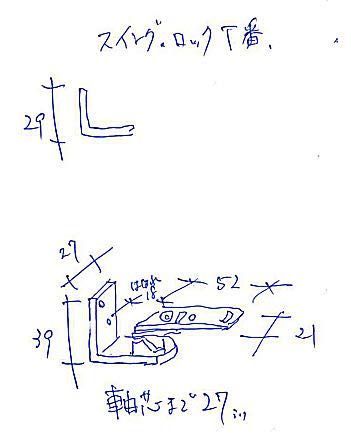 スイング.ロック丁番.
29
27
52
18
39
21
軸芯まで27